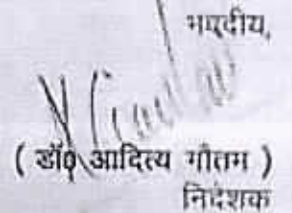 भवदीय,
( डॉ० आदित्य गौतम )
निदेशक